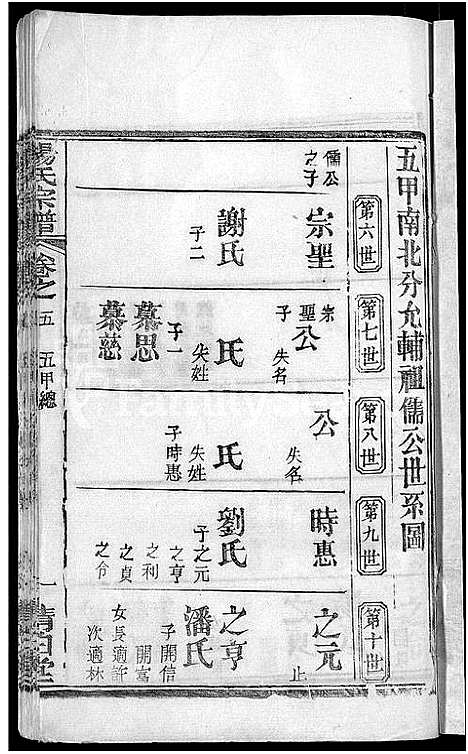 五甲南北分允輔祖儒公世系圖
第六世
第七世
第八世
第九世
第十世
儒公之子
宗聖
謝氏
子二
宗聖子
公
失名
氏
失姓
子一
慕思
慕慈
公
失名
氏
失姓
子時惠
時惠
劉氏
子之元
之亨
之利
之貞
之令
之元
止
之亨
潘氏
子開信
開富
女長適許
次適林
楊氏宗譜
卷之五
五甲總
一
清白堂